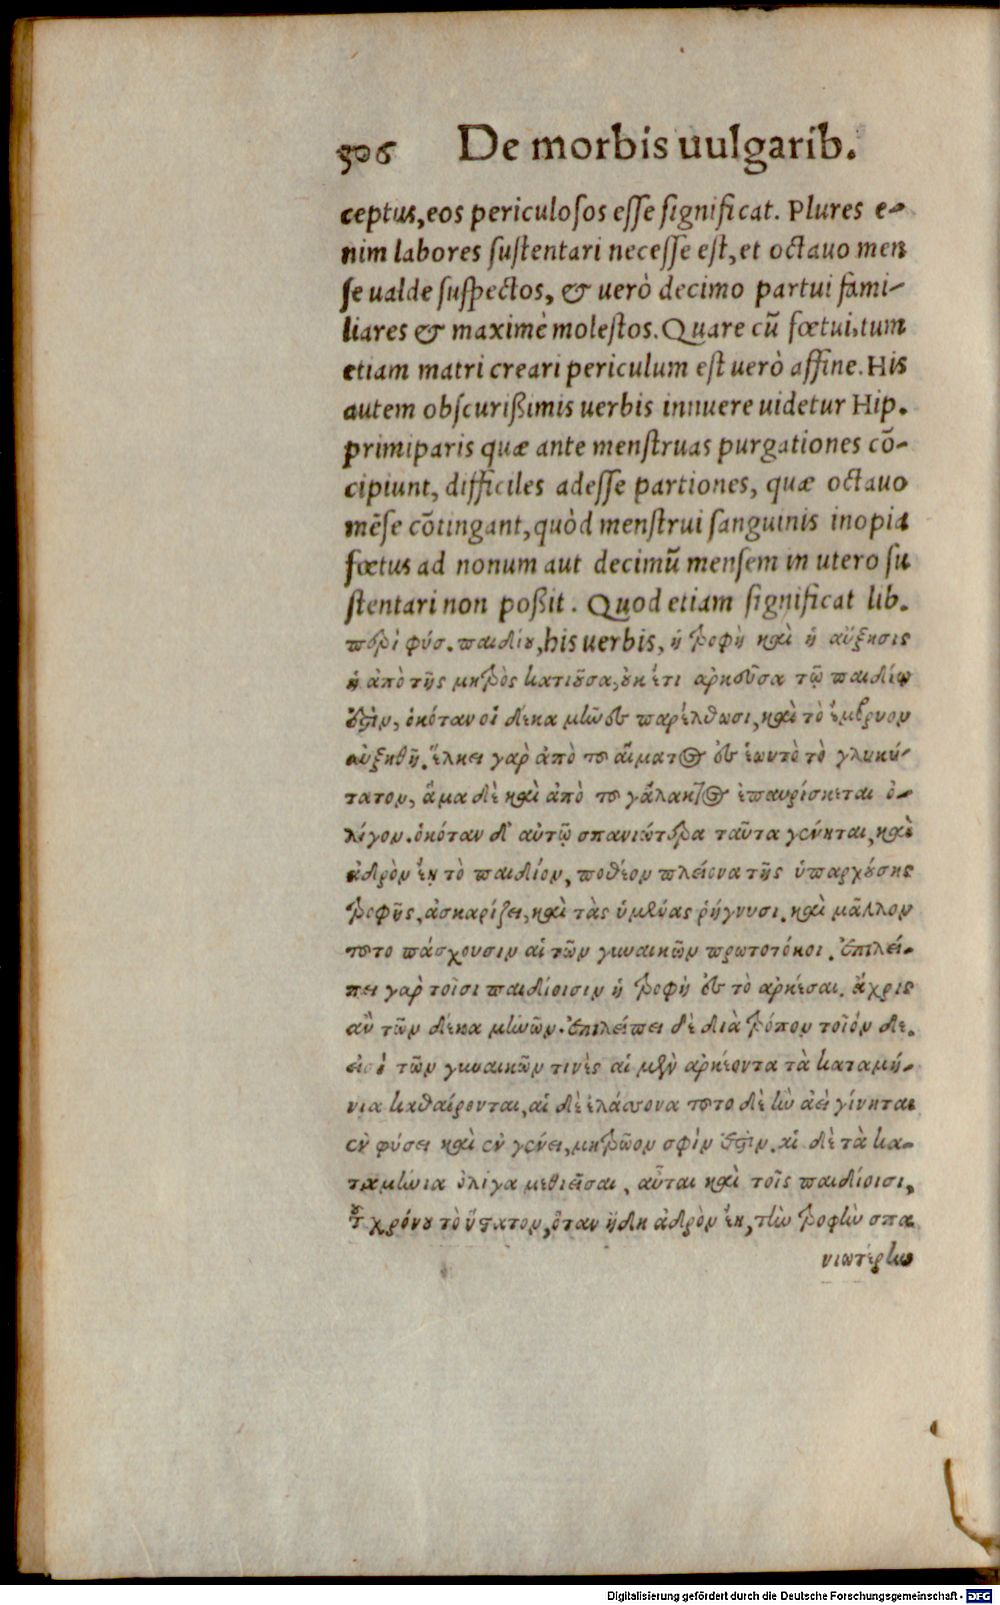 306 De morbis uulgarib.
ceptus, eos periculosos esse significat. Plures e-
nim labores sustentari necesse est, et octauo men
se ualde suspectos, & uerò decimo partui fami-
liares & maximè molestos. Quare cũ fœtui, tum
etiam matri creari periculum est uerò affine. His
autem obscurißimis uerbis innuere uidetur Hip.
primiparis quæ ante menstruas purgationes cõ-
cipiunt, difficiles adesse partiones, quæ octauo
mẽse cõtingant, quòd menstrui sanguinis inopia
fœtus ad nonum aut decimũ mensem in utero su
stentari non poßit. Quod etiam significat lib.
περὶ φύσ. παιδίου, his uerbis, ἡ τροφὴ καὶ ἡ αὔξησις
ἡ ἀπὸ τῆς μητρὸς κατιοῦσα, οὐκ ἔτι ἀρκοῦσα τῷ παιδίῳ
ἐστὶν, ὁκόταν οἱ δέκα μῆνες παρέλθωσι, καὶ τὸ ἔμβρυον
αὐξηθῇ. ἕλκει γὰρ ἀπὸ τοῦ αἵματος ἐς ἑωυτὸ τὸ γλυκύ-
τατον, ἅμα δὲ καὶ ἀπὸ τοῦ γάλακτος ἐπαυρίσκεται ὀ-
λίγον. ὁκόταν δ' αὐτῷ σπανιώτερα ταῦτα γένηται, καὶ
ἁδρὸν ἔῃ τὸ παιδίον, ποθέον πλείονα τῆς ὑπαρχούσης
τροφῆς, ἀσκαρίζει, καὶ τὰς ὑμένας ῥήγνυσι. καὶ μᾶλλον
τοῦτο πάσχουσιν αἱ τῶν γυναικῶν πρωτοτόκοι. ἐπιλεί-
πει γὰρ τοῖσι παιδίοισιν ἡ τροφὴ ἐς τὸ ἀρκέσαι. ἄχρις
ἂν τῶν δέκα μηνῶν. ἐπιλείπει δὲ διὰ τρόπον τοῖόν δε.
εἰσὶ τῶν γυναικῶν τινὲς αἱ μὲν ἀρκέοντα τὰ καταμή-
νια καθαίρονται, αἱ δὲ ἐλάσσονα τοῦτο δὲ ἢν ἀεὶ γίνηται
ἐν φύσει καὶ ἐν γένει, μητρῶον σφὶν ἐστιν. αἱ δὲ τὰ κα-
ταμήνια ὀλίγα μεθιεῖσαι, αὗται καὶ τοῖς παιδίοισι,
τοῦ χρόνου τὸ ὕστατον, ὅταν ἤδη ἁδρὸν ἔῃ, τὴν τροφὴν σπα
νιωτέρην
Digitalisierung gefördert durch die Deutsche Forschungsgemeinschaft - DFG